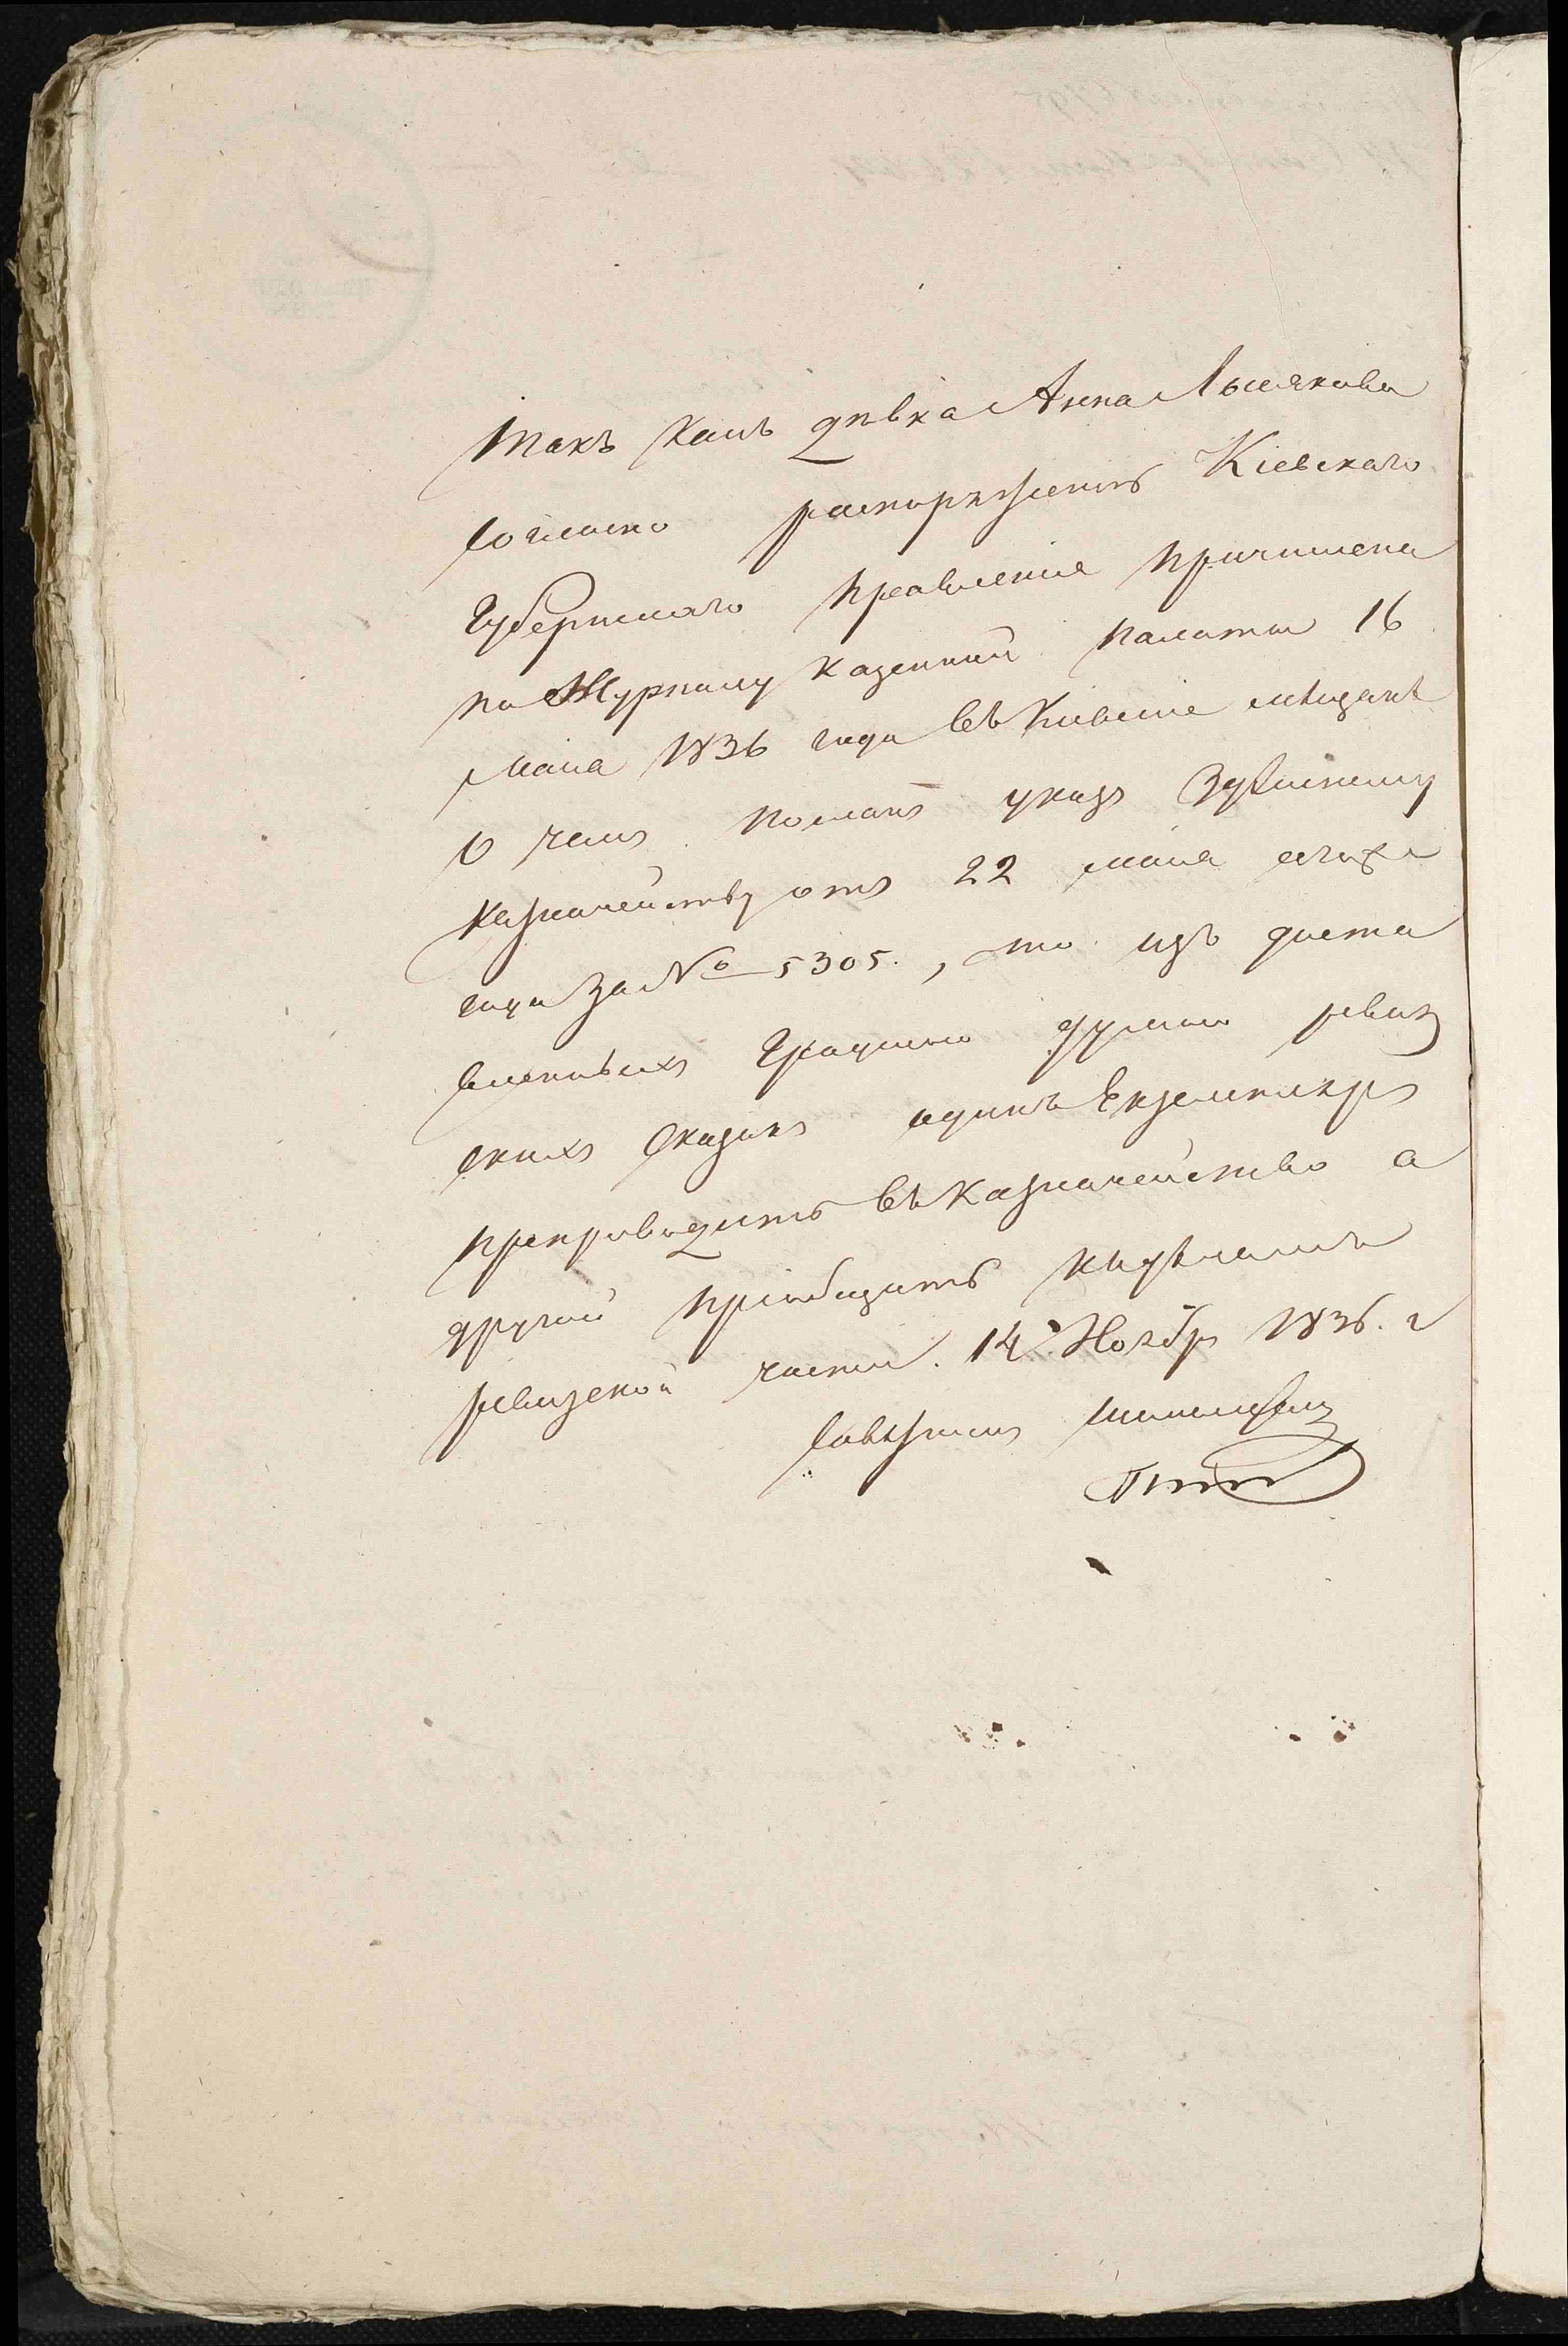 Такъ какъ дѣвка Анна Лысякова
согласно распоряженію Кіевскаго
Губернскаго правленія причислена
по Журналу Казенной палаты 16
Маія 1836 года въ Кіевскіе мѣщане
о чемъ посланъ указъ Уѣздному
казначейству отъ 22 маія сего же
года за № 5305., то изъ доста
вленныхъ Градскою думою ревиз
скихъ сказокъ одинъ Екземпляръ
препроводить въ Казначейство а
другой пріобщить къ дѣламъ
ревизской части. 14 Ноябр 1836. г
Совѣтникъ